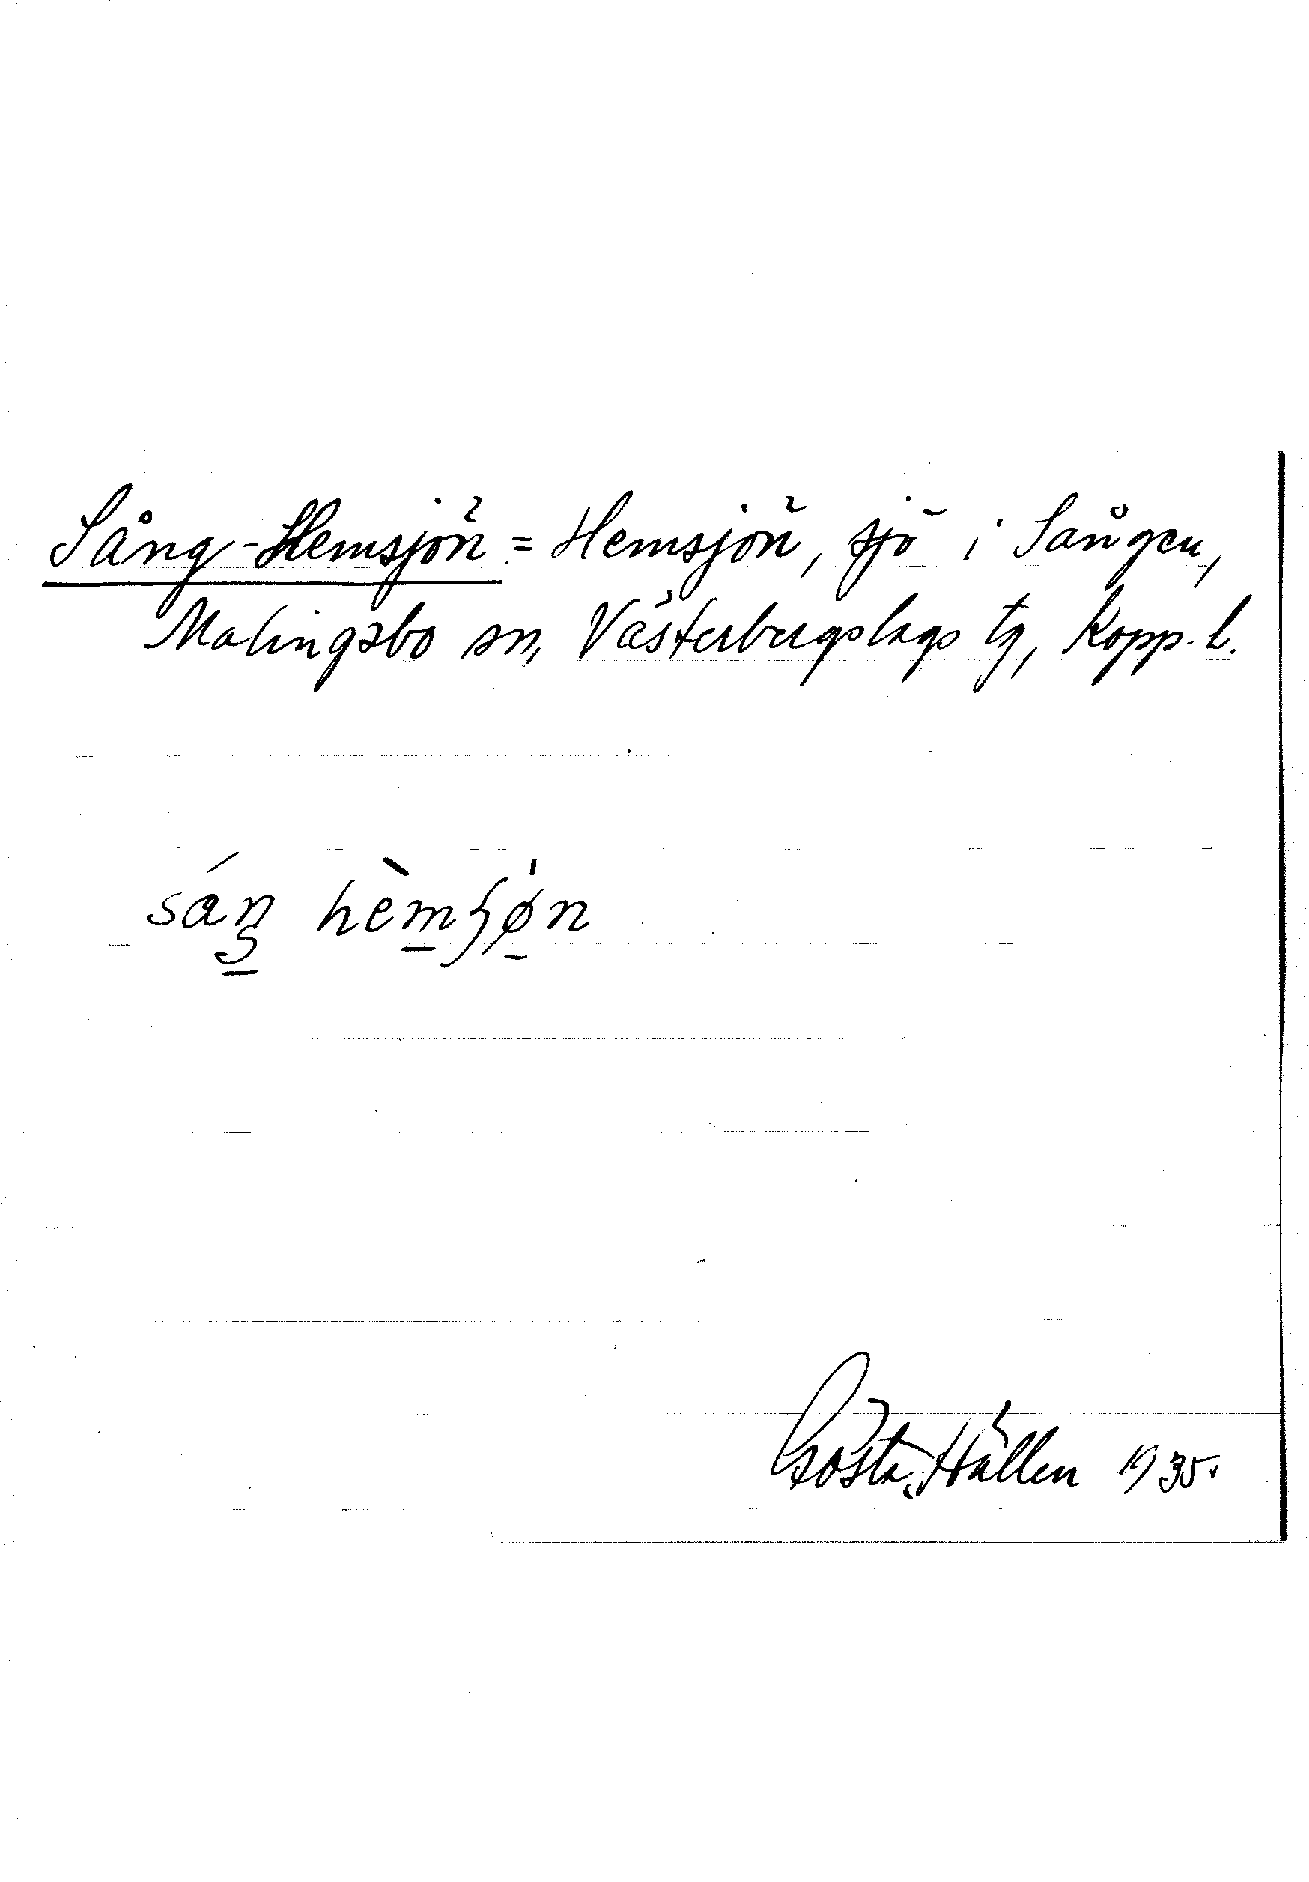 Sång-Hemsjön = Hemsjön, sjö i Sången,
Malingsbo sn, Västerbergslags tg, Kopp. l.
sáŋ hèmʃø̀n
Gösta Hallén 1935.